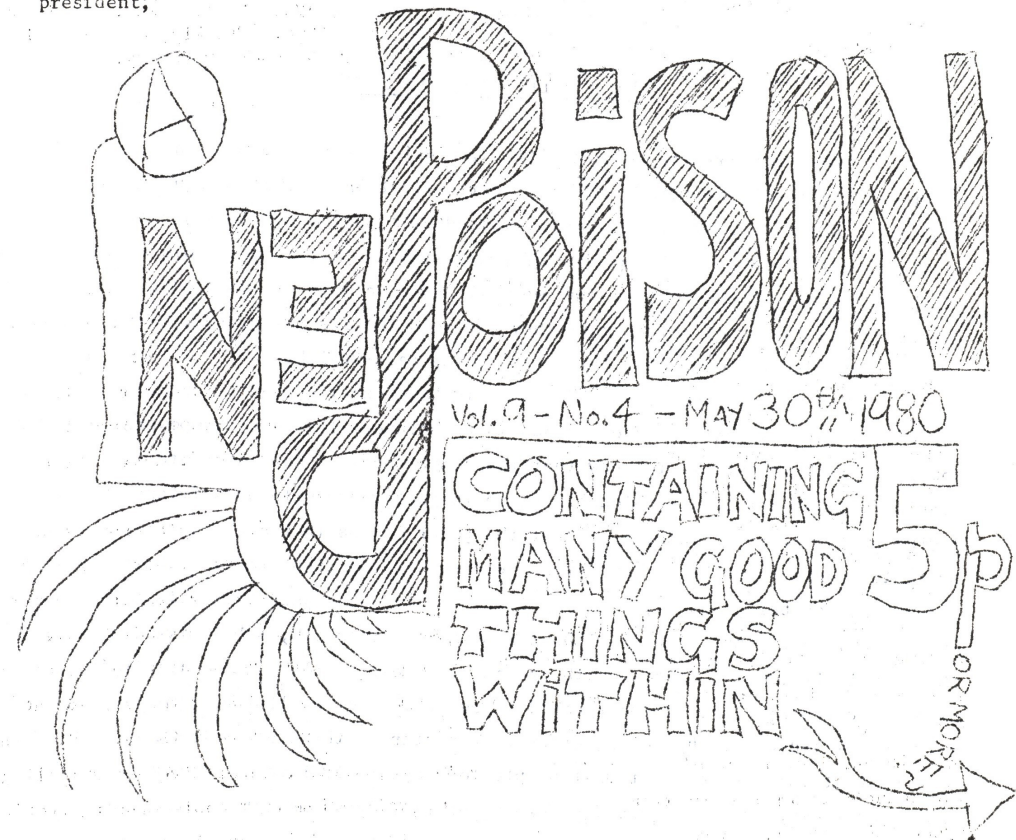 president,
Ⓐ
POiSON
PEN
Vol. 9 - No. 4 - MAY 30th 1980
CONTAINING
MANY GOOD
THINGS
WiTHIN
5p
OR MORE?